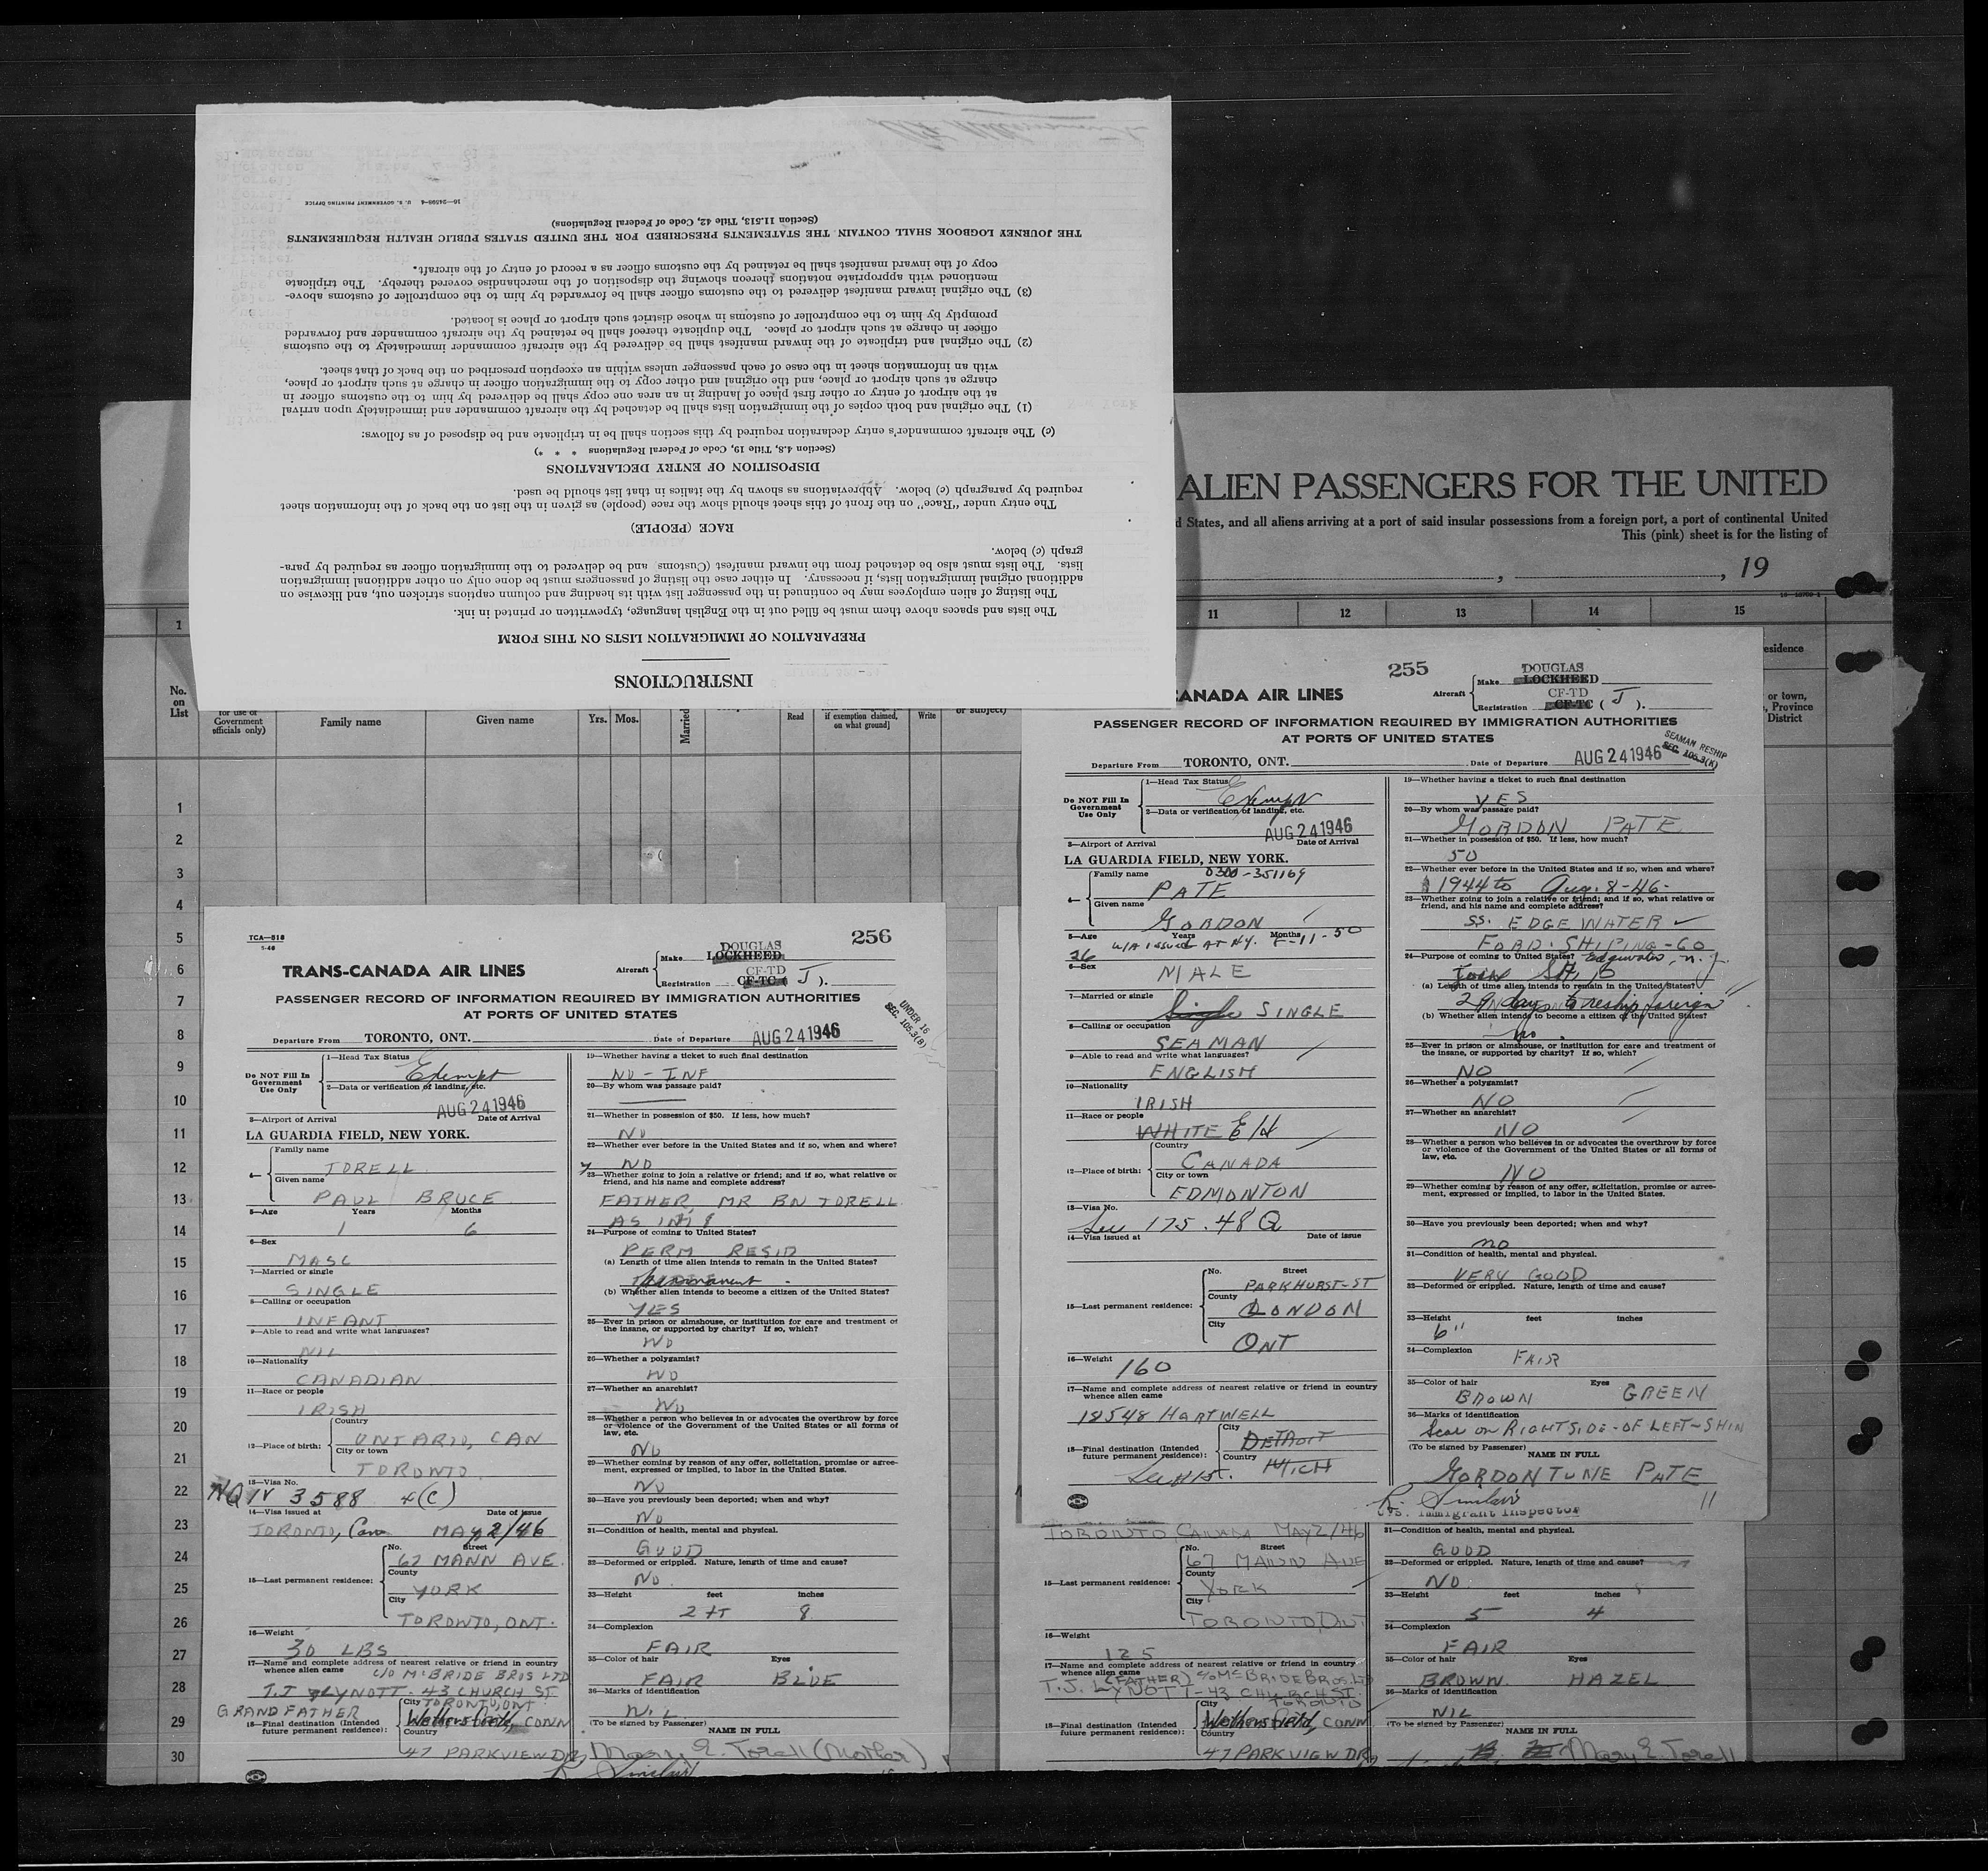 INSTRUCTIONS
PREPARATION OF IMMIGRATION LISTS ON THIS FORM
The lists and spaces above them must be filled out in the English language, typewritten or printed in ink.
The listing of alien employees may be continued in the passenger list with its heading and column captions stricken out, and likewise on
additional original immigration lists, if necessary. In either case the listing of passengers must be done only on other additional immigration
lists. The lists must also be detached from the inward manifest (Customs and be delivered to the immigration officer as required by para-
graph (c) below.
RACE (PEOPLE)
The entry under "Race" on the front of this sheet should show the race (people) as given in the list on the back of the information sheet
required by paragraph (c) below. Abbreviations as shown by the italics in that list should be used.
DISPOSITION OF ENTRY DECLARATIONS
(Section 4.8, Title 19, Code of Federal Regulations * * *)
(c) The aircraft commander's entry declaration required by this section shall be in triplicate and be disposed of as follows:
(1) The original and both copies of the immigration lists shall be detached by the aircraft commander and immediately upon arrival
at the airport of entry or other first place of landing in an area one copy shall be delivered by him to the customs officer in
charge at such airport or place, and the original and other copy to the immigration officer in charge at such airport or place,
with an information sheet in the case of each passenger unless within an exception prescribed on the back of that sheet.
(2) The original and triplicate of the inward manifest shall be delivered by the aircraft commander immediately to the customs
officer in charge at such airport or place. The duplicate thereof shall be retained by the aircraft commander and forwarded
promptly by him to the comptroller of customs in whose district such airport or place is located.
(3) The original inward manifest delivered to the customs officer shall be forwarded by him to the comptroller of customs above-
mentioned with appropriate notations thereon showing the disposition of the merchandise covered thereby. The triplicate
copy of the inward manifest shall be retained by the customs officer as a record of entry of the aircraft.
THE JOURNEY LOGBOOK SHALL CONTAIN THE STATEMENTS PRESCRIBED FOR THE UNITED STATES PUBLIC HEALTH REQUIREMENTS
(Section 11.513, Title 42, Code of Federal Regulations)
16—24598-4 U. S. GOVERNMENT PRINTING OFFICE
ALIEN PASSENGERS FOR THE UNITED
d States, and all aliens arriving at a port of said insular possessions from a foreign port, a port of continental United
This (pink) sheet is for the listing of
, , 19
1 11 12 13 14 15
No. on List
for use of Government officials only)
Family name
Given name
Yrs. Mos.
Married
Read
if exemption claimed, on what ground]
Write
or subject)
esidence
or town,
, Province
District
1
2
3
4
5
6
7
8
9
10
11
12
13
14
15
16
17
18
19
20
21
22
23
24
25
26
27
28
29
30
255
CANADA AIR LINES
Aircraft
Make DOUGLAS LOCKHEED
Registration CF-TD CF-TC ( J ).
PASSENGER RECORD OF INFORMATION REQUIRED BY IMMIGRATION AUTHORITIES
AT PORTS OF UNITED STATES
SEAMAN RESHIP
SEC. 105.3(K)
Departure From TORONTO, ONT. Date of Departure AUG 24 1946
Do NOT Fill In Government Use Only
1—Head Tax Status
Exempt
2—Data or verification of landing, etc.
AUG 24 1946
3—Airport of Arrival Date of Arrival
LA GUARDIA FIELD, NEW YORK.
Family name 0300-351169
4— PATE
Given name
GORDON
5—Age Years Months
26 W/A ISSUED AT NY. F-11-50
6—Sex
MALE
7—Married or single
Single SINGLE
8—Calling or occupation
SEAMAN
9—Able to read and write what languages?
ENGLISH
10—Nationality
IRISH
11—Race or people
WHITE
12—Place of birth:
Country
CANADA
City or town
EDMONTON
13—Visa No.
Sec 175.48 Q
14—Visa issued at Date of issue
15—Last permanent residence:
No. Street
PARKHURST-ST
County
LONDON
City
ONT
16—Weight
160
17—Name and complete address of nearest relative or friend in country
whence alien came
18548 HARTWELL
18—Final destination (Intended
future permanent residence):
City
DETROIT
Country
MICH
19—Whether having a ticket to such final destination
YES
20—By whom was passage paid?
GORDON PATE
21—Whether in possession of $50. If less, how much?
50
22—Whether ever before in the United States and if so, when and where?
1944 to Aug. 8-46-
23—Whether going to join a relative or friend; and if so, what relative or
friend, and his name and complete address?
SS. EDGEWATER
FORD. SHIPING-CO
24—Purpose of coming to United States? Edgewater, N.J.
(a) Length of time alien intends to remain in the United States?
29 days to reship foreign
(b) Whether alien intends to become a citizen of the United States?
no
25—Ever in prison or almshouse, or institution for care and treatment of
the insane, or supported by charity? If so, which?
NO
26—Whether a polygamist?
NO
27—Whether an anarchist?
NO
28—Whether a person who believes in or advocates the overthrow by force
or violence of the Government of the United States or all forms of
law, etc.
NO
29—Whether coming by reason of any offer, solicitation, promise or agree-
ment, expressed or implied, to labor in the United States.
30—Have you previously been deported; when and why?
no
31—Condition of health, mental and physical.
VERY GOOD
32—Deformed or crippled. Nature, length of time and cause?
33—Height feet inches
6"
34—Complexion
FAIR
35—Color of hair Eyes
BROWN GREEN
36—Marks of identification
Scar on RIGHTSIDE-OF LEFT-SHIN
(To be signed by Passenger)
NAME IN FULL
GORDON TUNE PATE
R. Sinclair 11
U.S. Immigrant Inspector
TCA—518
1-46
256
TRANS-CANADA AIR LINES
Aircraft
Make DOUGLAS LOCKHEED
Registration CF-TD CF-TC ( J ).
PASSENGER RECORD OF INFORMATION REQUIRED BY IMMIGRATION AUTHORITIES
AT PORTS OF UNITED STATES
UNDER 16
SEC. 105.3(B)
Departure From TORONTO, ONT. Date of Departure AUG 24 1946
Do NOT Fill In Government Use Only
1—Head Tax Status
Exempt
2—Data or verification of landing, etc.
AUG 24 1946
3—Airport of Arrival Date of Arrival
LA GUARDIA FIELD, NEW YORK.
Family name
4— TORELL
Given name
PAUL BRUCE
5—Age Years Months
1 6
6—Sex
MASC
7—Married or single
SINGLE
8—Calling or occupation
INFANT
9—Able to read and write what languages?
NIL
10—Nationality
CANADIAN
11—Race or people
IRISH
12—Place of birth:
Country
ONTARIO, CAN
City or town
TORONTO
13—Visa No.
NQIV 3588 4(C)
14—Visa issued at Date of issue
TORONTO, Can MAY 2/46
15—Last permanent residence:
No. Street
67 MANN AVE.
County
YORK
City
TORONTO, ONT.
16—Weight
30 LBS
17—Name and complete address of nearest relative or friend in country
whence alien came C/O McBRIDE BROS LTD
T.J LYNOTT - 43 CHURCH ST
GRANDFATHER
18—Final destination (Intended
future permanent residence):
City TORONTO, ONT
Wethersfield, CONN
Country
47 PARKVIEW DR
19—Whether having a ticket to such final destination
NO - INF
20—By whom was passage paid?
21—Whether in possession of $50. If less, how much?
NO
22—Whether ever before in the United States and if so, when and where?
NO
23—Whether going to join a relative or friend; and if so, what relative or
friend, and his name and complete address?
FATHER, MR BN TORELL
AS IN 18
24—Purpose of coming to United States?
PERM RESID
(a) Length of time alien intends to remain in the United States?
Permanent
(b) Whether alien intends to become a citizen of the United States?
YES
25—Ever in prison or almshouse, or institution for care and treatment of
the insane, or supported by charity? If so, which?
NO
26—Whether a polygamist?
NO
27—Whether an anarchist?
NO
28—Whether a person who believes in or advocates the overthrow by force
or violence of the Government of the United States or all forms of
law, etc.
NO
29—Whether coming by reason of any offer, solicitation, promise or agree-
ment, expressed or implied, to labor in the United States.
NO
30—Have you previously been deported; when and why?
NO
31—Condition of health, mental and physical.
GOOD
32—Deformed or crippled. Nature, length of time and cause?
NO
33—Height feet inches
2 FT 8
34—Complexion
FAIR
35—Color of hair Eyes
FAIR BLUE
36—Marks of identification
NIL
(To be signed by Passenger)
NAME IN FULL
Mary E. Torell (Mother)
R Sinclair
TORONTO, CANADA MAY 2/46
15—Last permanent residence:
No. Street
67 MANN AVE
County
YORK
City
TORONTO, ONT
16—Weight
125
17—Name and complete address of nearest relative or friend in country
whence alien came (FATHER) C/O McBRIDE BROS. LTD
T.J. LYNOTT - 43 CHURCH ST.
18—Final destination (Intended
future permanent residence):
City TORONTO
Wethersfield, CONN
Country
47 PARKVIEW DR
31—Condition of health, mental and physical.
GOOD
32—Deformed or crippled. Nature, length of time and cause?
NO
33—Height feet inches
5 4
34—Complexion
FAIR
35—Color of hair Eyes
BROWN HAZEL
36—Marks of identification
NIL
(To be signed by Passenger)
NAME IN FULL
Mary E Torell